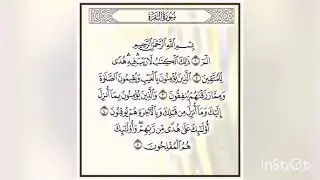 سُورَةُ البَقَرَة
بِسْمِ اللَّهِ الرَّحْمَٰنِ الرَّحِيمِ
الٓمٓ ۝١ ذَٰلِكَ الْكِتَابُ لَا رَيْبَ فِيهِ هُدًى
لِّلْمُتَّقِينَ ۝٢ الَّذِينَ يُؤْمِنُونَ بِالْغَيْبِ وَيُقِيمُونَ الصَّلَاةَ
وَمِمَّا رَزَقْنَاهُمْ يُنفِقُونَ ۝٣ وَالَّذِينَ يُؤْمِنُونَ بِمَا أُنزِلَ
إِلَيْكَ وَمَا أُنزِلَ مِن قَبْلِكَ وَبِالْآخِرَةِ هُمْ يُوقِنُونَ ۝٤
أُولَٰئِكَ عَلَىٰ هُدًى مِّن رَّبِّهِمْ وَأُولَٰئِكَ
هُمُ الْمُفْلِحُونَ ۝٥
InShOt